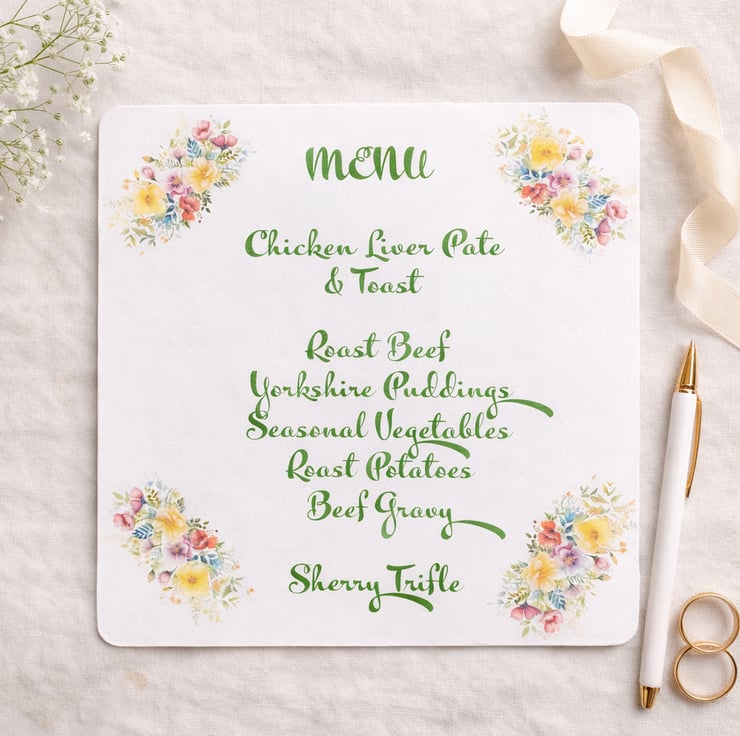 MENU
Chicken Liver Pate
& Toast
Roast Beef
Yorkshire Puddings
Seasonal Vegetables
Roast Potatoes
Beef Gravy
Sherry Trifle